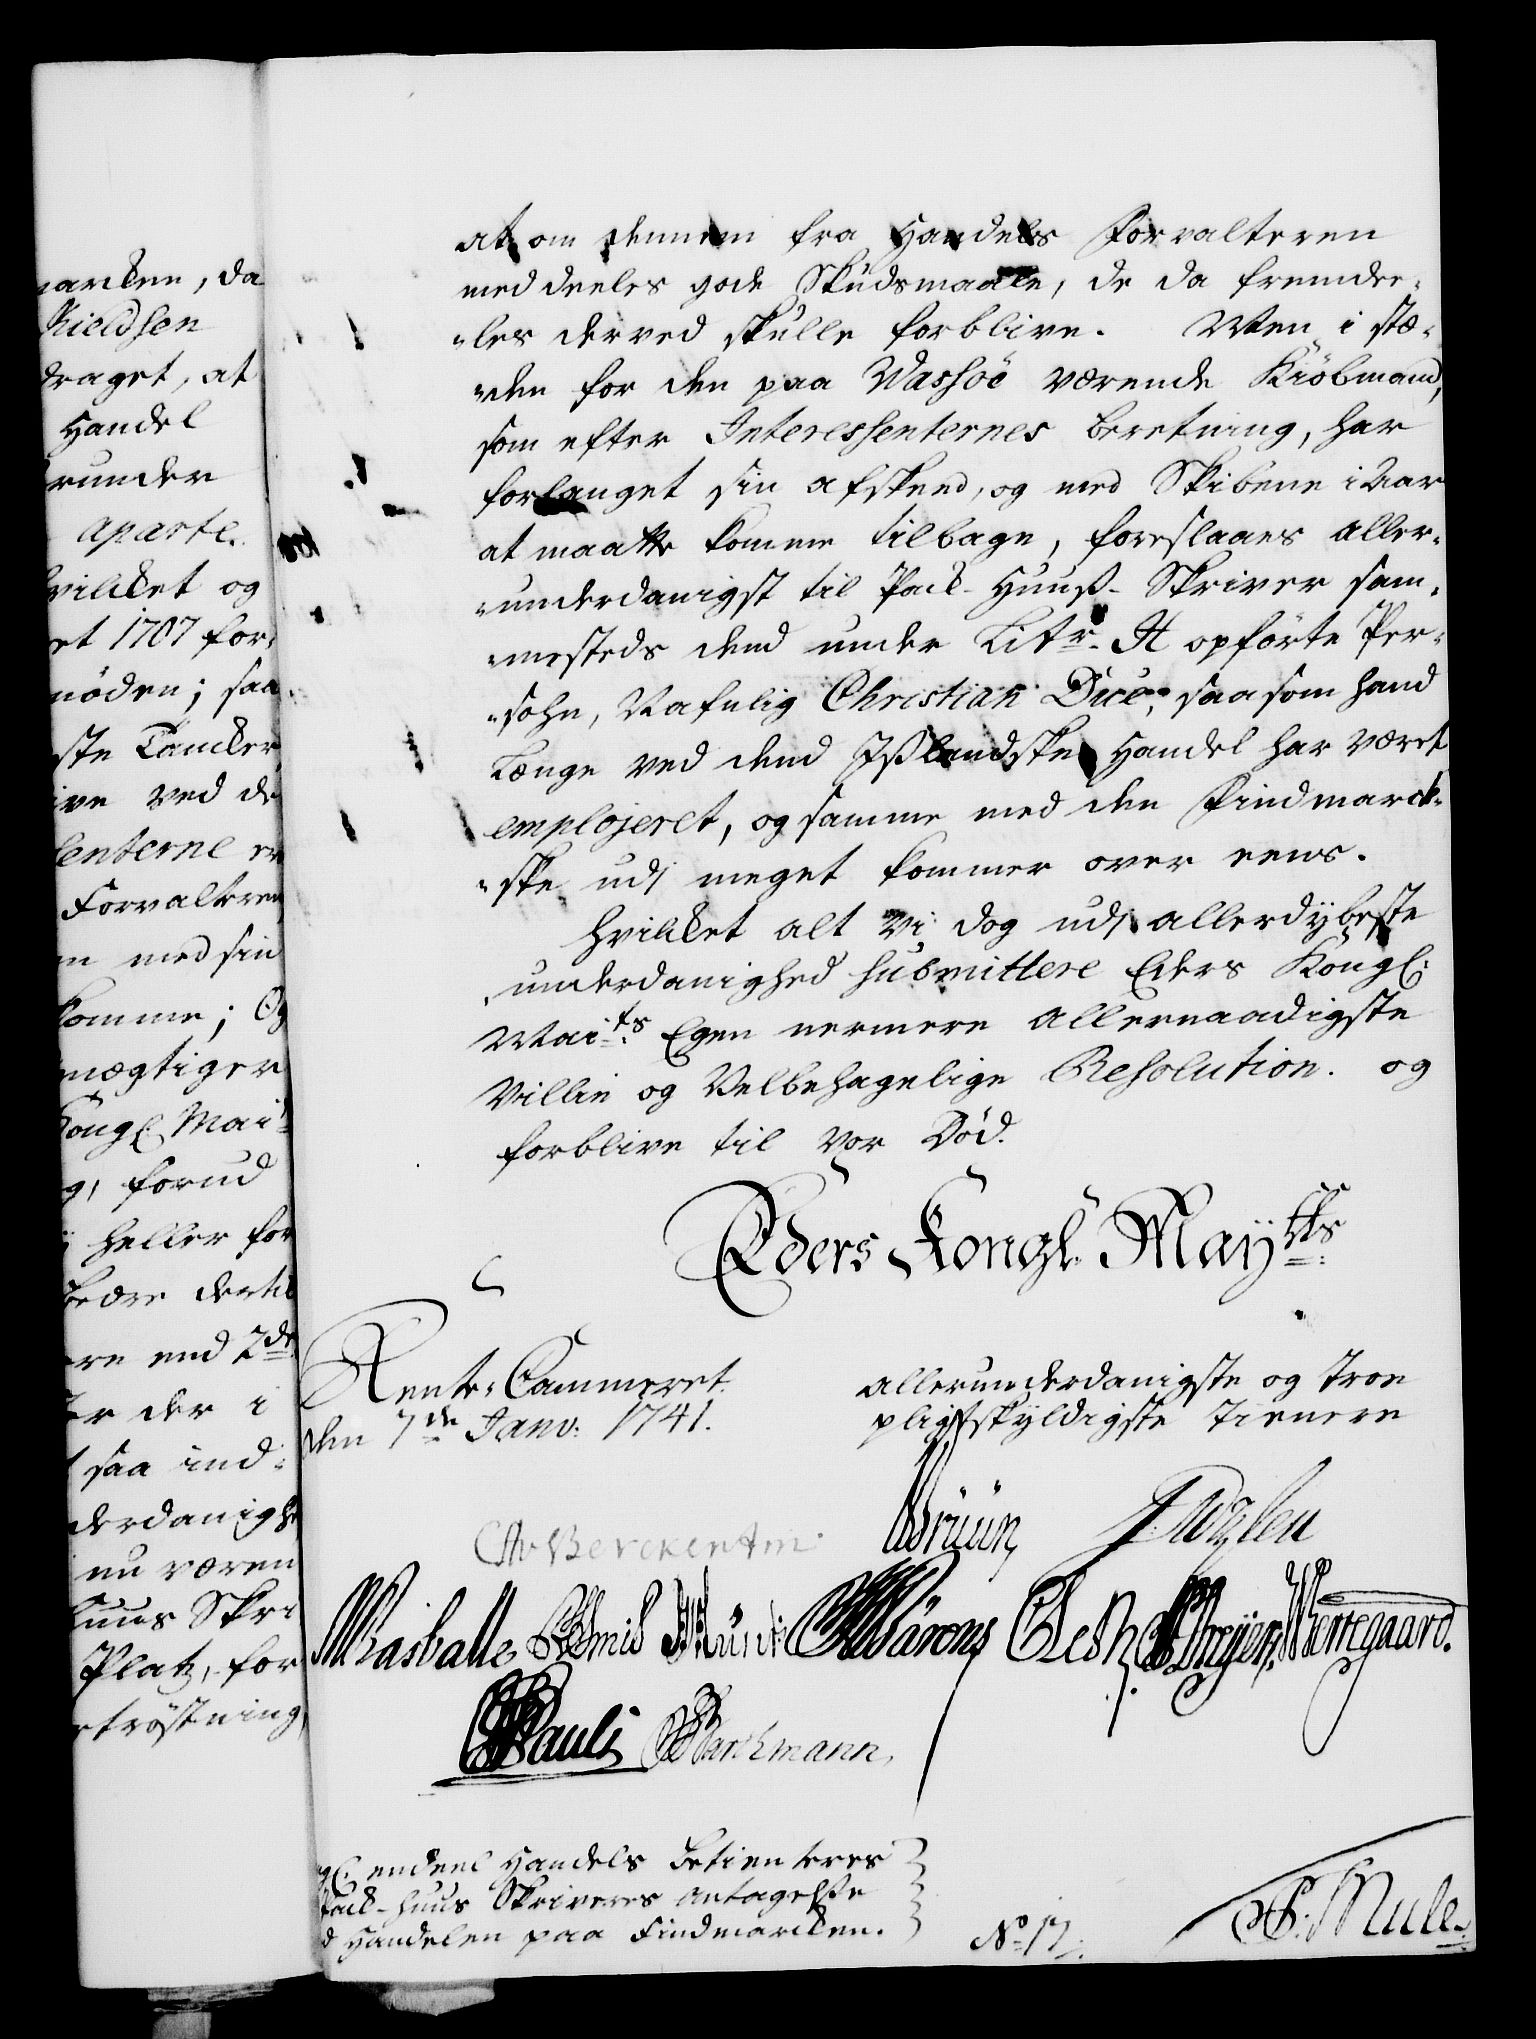 arcken, da
Kieldsen
draget, at
Handel
runder
aparte.
hvilket og
et 1707 for-
nöden; saa
ste Tancker
ive ved de
senterne er
Forvalteren
m med sin
komme; Og
mægtiger
Kongl. Mait
g, forud
heller for
bedre dertil
re end 2de
er der i
saa ind-
derdanigh
nu væren
huus Skri
Platz, for
tröstning
at om dennem fra Handels Forvalteren
meddeeles gode Skudsmaale, de da fremdee-
les derved skulle forblive. Men i stæ-
den for den paa Wasöe værende Kiöbmand,
som efter Interessenternes beretning, har
forlanget sin afskeed, og med Skibene i Aar
at maatte komme tilbage, foreslaaes aller-
underdanigst til Pack-Huuß-Skriver sam-
mesteds dend under Litr. A opförte Per-
sohn, Nafnlig Christian Due, saasom hand
længe ved dend Ißlandske Handel har været
emplojeret, og samme med den Findmarck-
ske udj meget kommer over eens.
Hvilket alt Vi dog udj allerdybeste
underdanighed submittere Eders Kongl:
Maits Egen nermere allernaadigste
Villie og Velbehagelige Resolution. og
forblive til vor Död.
Eders Kongl. Mayts
Rente-Cammeret
den 7de Janv: 1741.
allerunderdanigste og troe
pligtskyldigste tienere
CAv Berckentin
Bruun
MRasballe
Wærregaard.
Pauli
Barthmann
gl. endeel Handels betienteres
Pack-Huus Skriveres antagelße
d Handelen paa Findmarcken.
No 17.
P. Mule